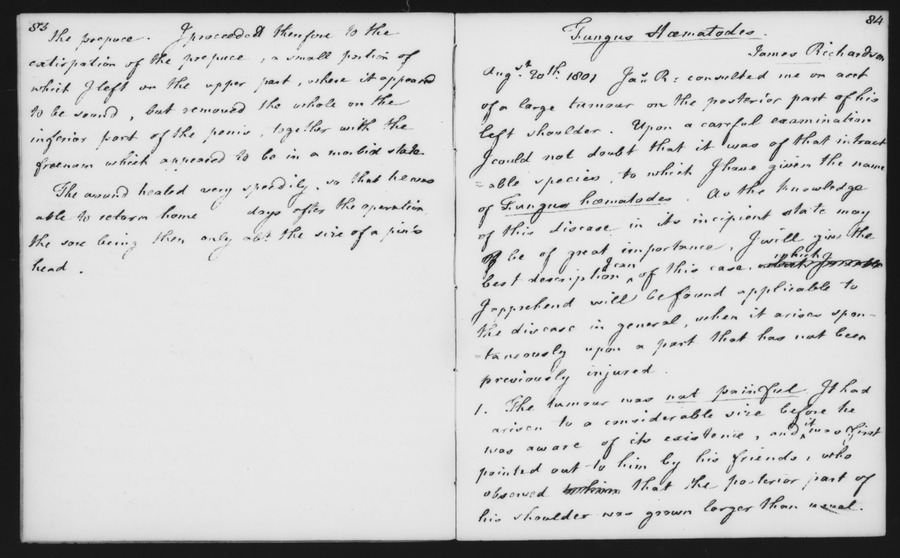 83
the prepuce. I proceeded therefore to the
extirpation of the prepuce, a small portion of
which I left on the upper part, where it appeared
to be sound, but removed the whole on the
inferior part of the penis, together with the
froenum which appeared to be in a morbid state.
The wound healed very speedily, so that he was
able to return home days after the operation,
the sore being then only abt. the size of a pin's
head.
84
Fungus Hæmatodes.
James Richardson
Augst. 20th. 1801 Jas. R: consulted me on acct
of a large tumour on the posterior part of his
left shoulder. Upon a careful examination
I could not doubt that it was of that intract
=able species, to which I have given the name
of Fungus hæmatodes. As the knowledge
of this disease in its incipient state may
be of great importance, I will give the
best description I can of this case, which
I apprehend will be found applicable to
the disease in general, when it arises spon-
-taneously upon a part that has not been
previously injured.
1. The tumour was not painful. It had
arisen to a considerable size before he
was aware of its existence, and it was first
pointed out to him by his friends, who
observed that the posterior part of
his shoulder was grown larger than usual.